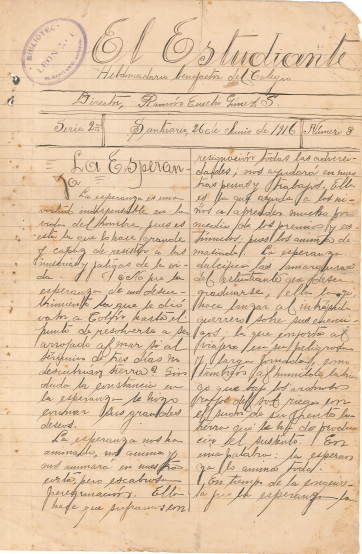 BIBLIOTECA
El Estudiante
Hebdomadario benefactor del Colegio
Director, Ramón Emilio Jiménez S.
Serie 2ª
Santiago, 26 de Junio de 1916
Número 8
La Esperan-
za
La esperanza es una
virtud indispensable en la
vida del hombre, pues es
esta la que lo hace grande
y capaz de resistir a las
y fatigas de la vi-
da. ¿No fue la
esperanza de un descu-
brimiento la que le dió
valor a Colón hasta el
punto de resolverse a ser
arrojado al mar si al
término de tres días no
descubrían tierra? Sin
duda la constancia en
la esperanza le hizo
coronar sus grandes
deseos.
La esperanza nos ha
animado, nos anima y
nos animará en nuestra
corta, pero escabrosa
peregrinación. Ella
hace que suframos con
resignación todas las adversi-
dades, nos ayudará en nues-
tras penas y trabajos. Ella
es la que ayuda a los ni-
ños a aprender mucho por
medio de los premios y es-
tímulos, pues los anima so-
La esperanza
dulcifica las amarguras
del estudiante que desea
graduarse, ella
hace lanzar al intrépido
guerrero sobre sus enemi-
gos, la que empuja al
viajero en su peligrosa
y larga jornada, y am-
al humilde labrie-
go que bajo los ardientes
rayos del sol riega con
el sudor de su frente la
tierra que le ha de produ-
cir el sustento. En
una palabra: la esperan-
za lo anima todo.
En tiempo de la conquis-
ta fue la esperanza la